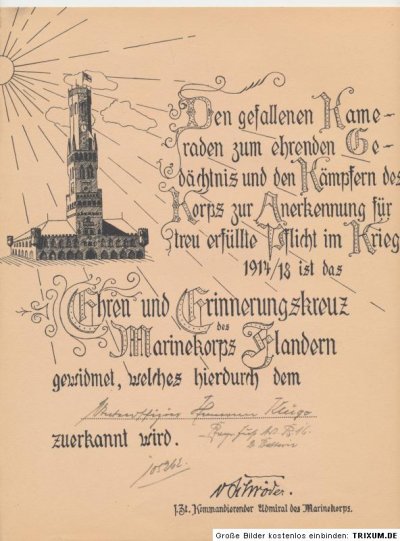 Den gefallenen Kame-
raden zum ehrenden Ge-
dächtnis und den Kämpfern des
Korps zur Anerkennung für
treu erfüllte Pflicht im Krieg
1914/18 ist das
Ehren und Erinnerungskreuz
des
Marinekorps Flandern
gewidmet, welches hierdurch dem
zuerkannt wird.
v Schröder.
z.Zt. Kommandierender Admiral des Marinekorps.
Große Bilder kostenlos einbinden: TRIXUM.DE